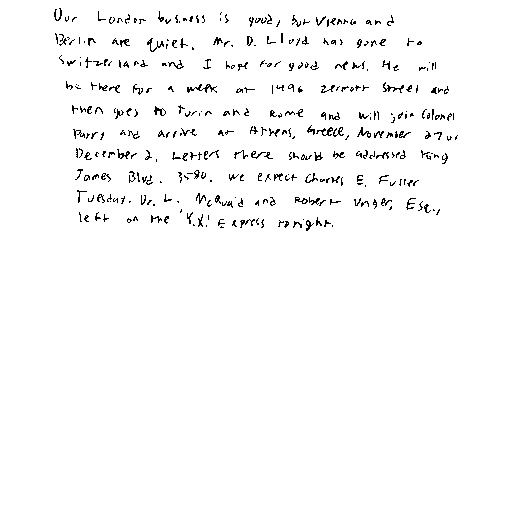 Our London business is good, but Vienna and
Berlin are quiet. Mr. D. Lloyd has gone to
Switzerland and I hope for good news. He will
be there for a week at 1496 Zermott Street and
then goes to Turin and Rome and will join Colonel
Parry and arrive at Athens, Greece, November 27 or
December 2. Letters there should be addressed King
James Blvd. 3580. We expect Charles E. Fuller
Tuesday. Dr. L. McQuaid and Robert Unger, Esq.,
left on the 'Y.X.' Express tonight.